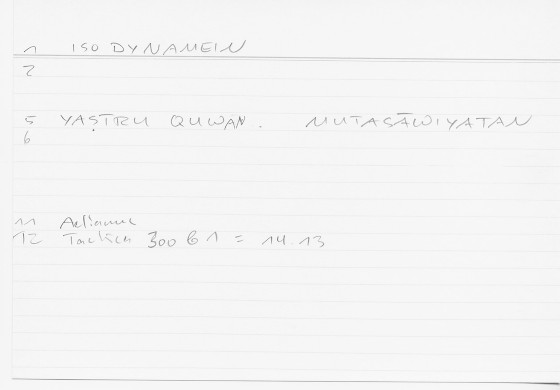 1 ISO DYNAMEIN
2
5 YAṢĪRU QUWAN. MUTASĀWIYATAN
6
11 Aelianus
12 Tactica 300 B 1 = 14.13